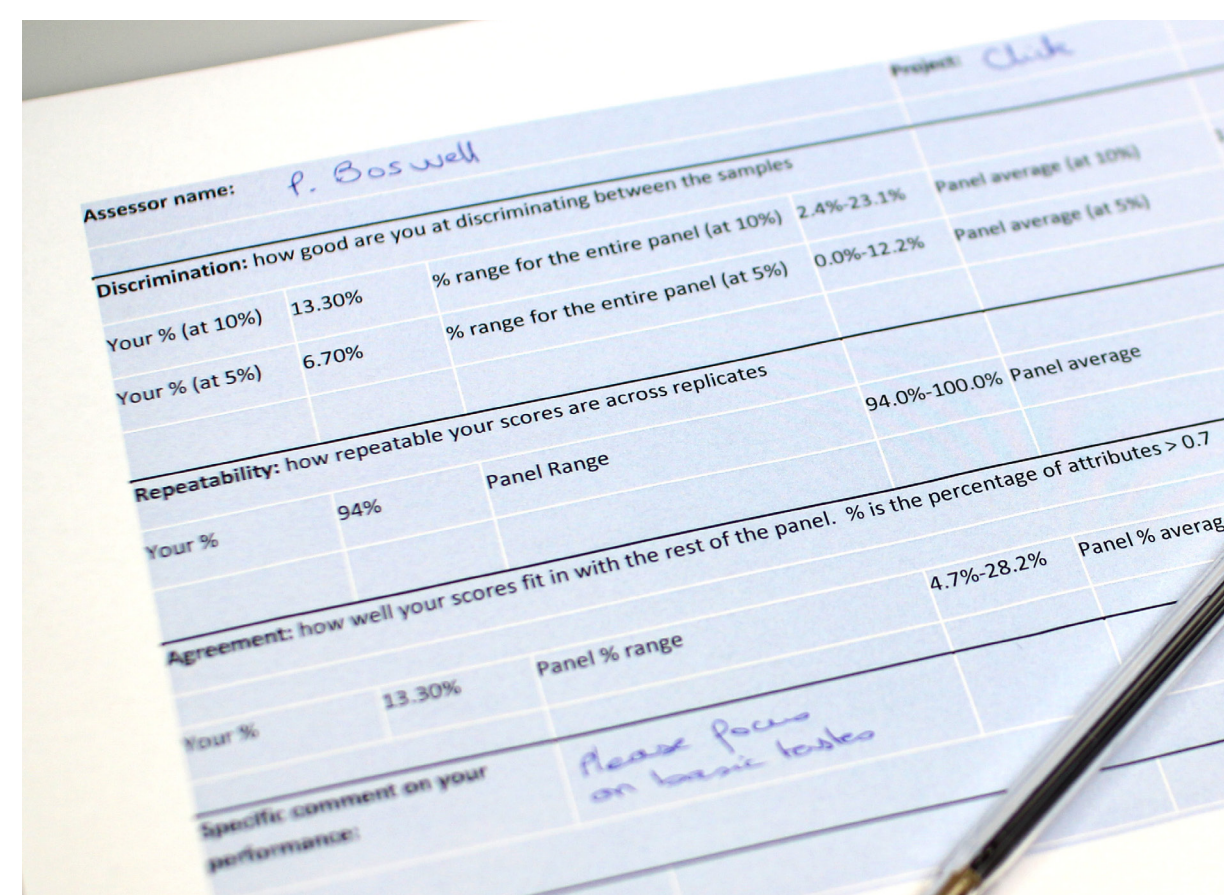 Project: Chick
Assessor name: P. Boswell
Discrimination: how good are you at discriminating between the samples
Your % (at 10%) 13.30% % range for the entire panel (at 10%) 2.4%-23.1% Panel average (at 10%)
Your % (at 5%) 6.70% % range for the entire panel (at 5%) 0.0%-12.2% Panel average (at 5%)
Repeatability: how repeatable your scores are across replicates
Your % 94% Panel Range 94.0%-100.0% Panel average
Agreement: how well your scores fit in with the rest of the panel. % is the percentage of attributes > 0.7
Your % 13.30% Panel % range 4.7%-28.2% Panel % averag
Specific comment on your
performance:
Please focus
on basic tastes